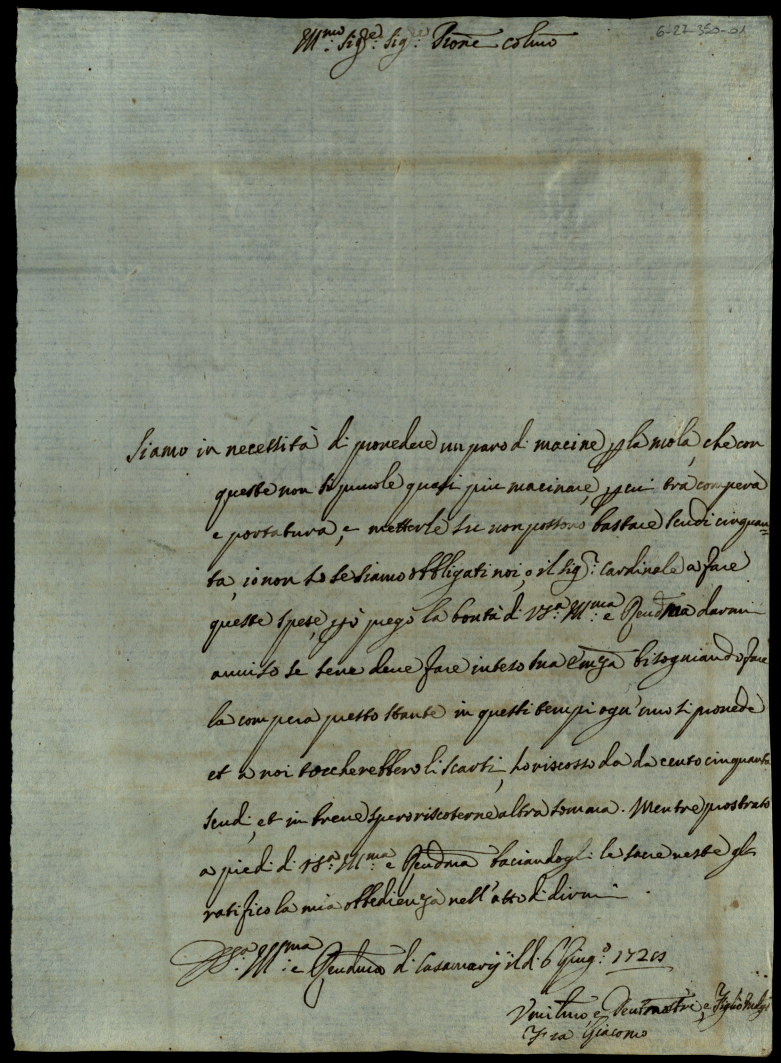 6-27-350-01
Ill.mo Sig.re Sig.re Prone Colmo
Siamo in necessità di provedere un paro di macine p la mola, che con
queste non si puole quasi più macinare, p cui trà compera
e portatura, e metterle sù non possono bastare scudi cinquan=
ta, io non sò se siamo obbligati noi, o il Sig.r Cardinale a fare
queste spese, p ciò prego la bontà di V.S.a Ill.ma e Revdma darmi
avviso se sene deve fare inteso sua Emza bisogniando fare
la compera presto stante in questi tempi ogn'uno si provede
et à noi toccherebbero li scarti, ho riscosso da da cento cinquanta
scudi, et in breve spero riscoterne altra somma. Mentre prostrato
a piedi di V.S.a Ill.ma e Revdma baciandogli le sacre veste gli
ratifico la mia obbedienza nell'atto di dirmi
D.V.S.a Ill.ma e Revdma di Casamarij il dì 6 Giug.o
Umilmo e Fra Giacomo